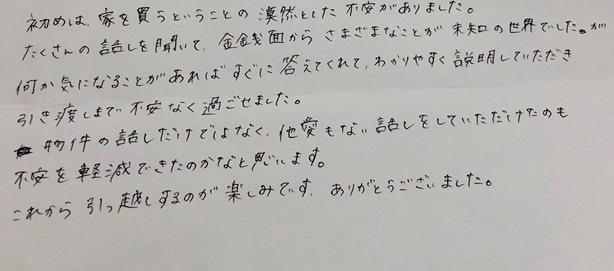 初めは、家を買うということの漠然とした不安がありました。
たくさんの話しを聞いて、金銭面からさまざまなことが未知の世界でした。が
何か気になることがあればすぐに答えてくれて、わかりやすく説明していただき
引き渡しまで不安なく過ごせました。
物件の話しだけではなく、他愛もない話しをしていただけたのも
不安を軽減できたのかなと思います。
これから引っ越しするのが楽しみです。ありがとうございました。